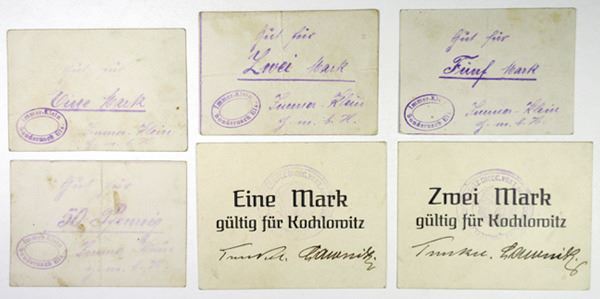 Gut für
Eine Mark
Immer-Klein
G.m.b.H.
Immer-Klein
Gut für
Zwei Mark
Immer-Klein
G.m.b.H.
Immer-Klein
Gut für
Fünf Mark
Immer-Klein
G.m.b.H.
Immer-Klein
Gut für
50 Pfennig
Immer-Klein
G.m.b.H.
Eine Mark
gültig für Kochlowitz
Zwei Mark
gültig für Kochlowitz